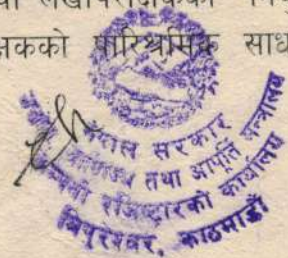 लेखापरीक्षकको
क्षकको पारिश्रमिक साध
नेपाल सरकार
वाणिज्य तथा आपूर्ति मन्त्रालय
कम्पनी रजिष्ट्रारको कार्यालय
त्रिपुरेश्वर, काठमाडौं